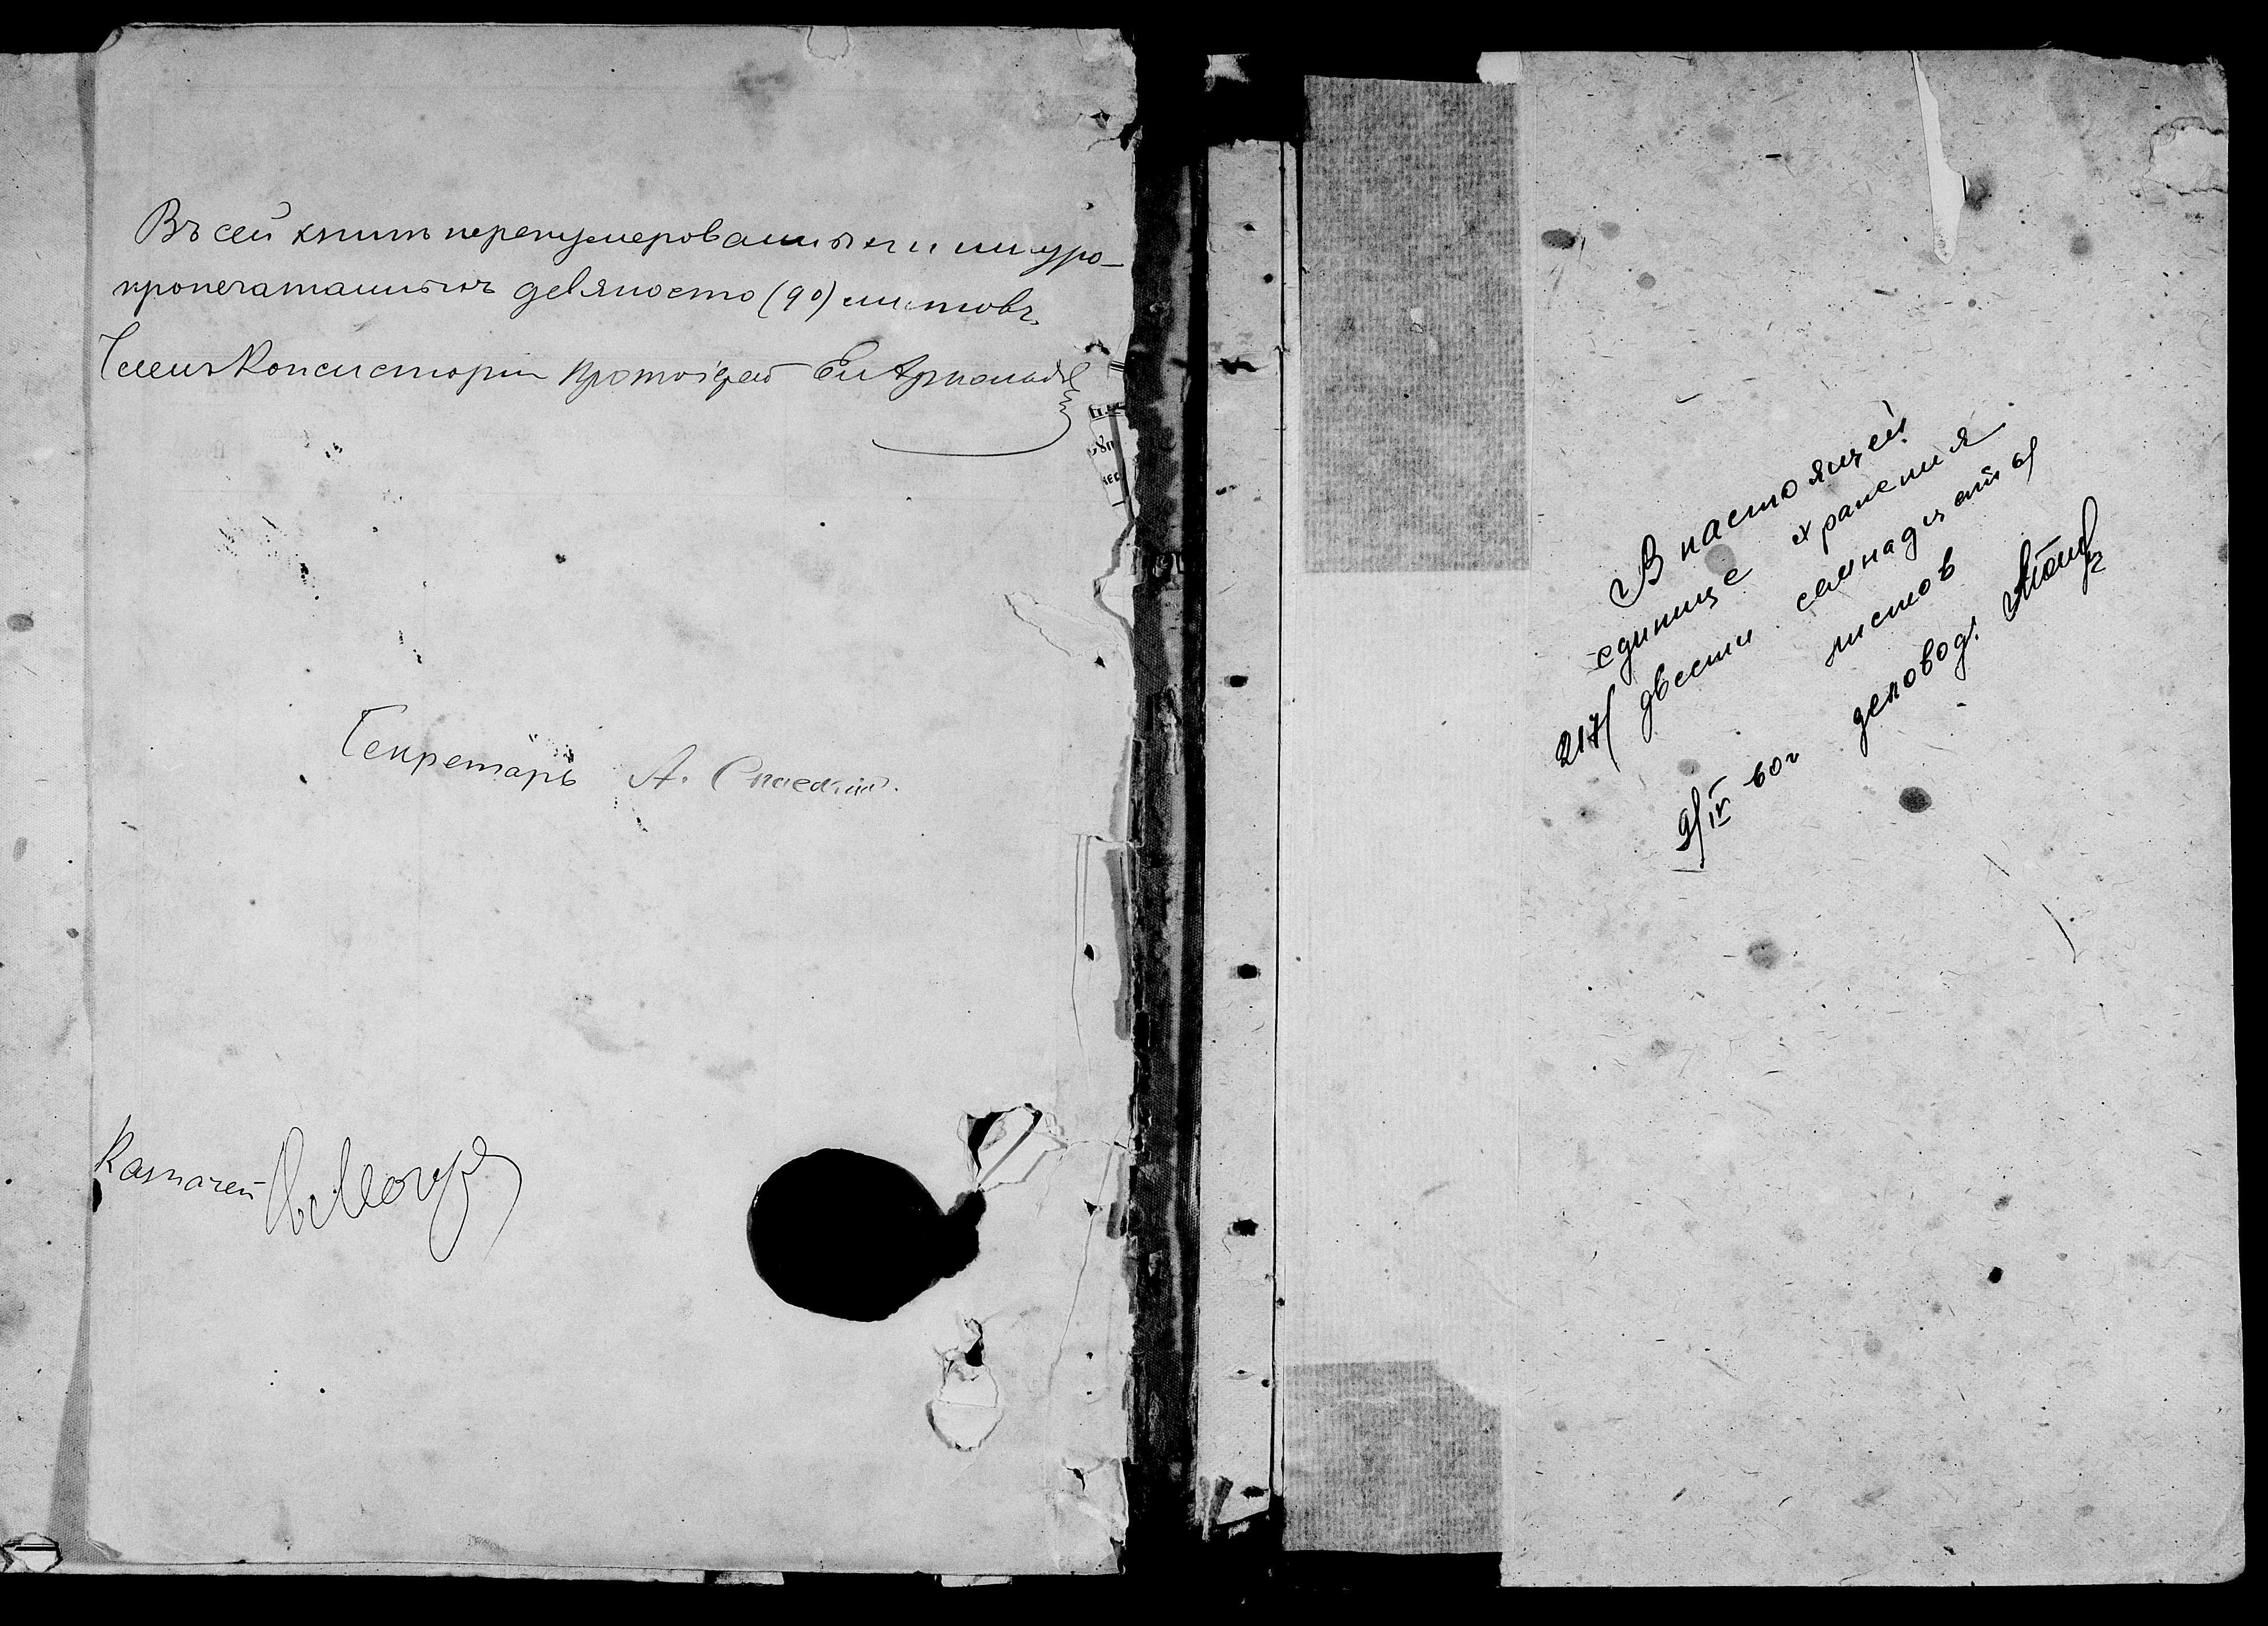 Въ сей книгѣ перенумерованныхъ и шнуро-
пропечатанныхъ девяносто (90) листовъ
Членъ Консисторіи Протоіерей
Секретарь А. Спасскій.
Казначей
В настоящей
единице хранения
217/ двести семнадцать/
листов
9/IV 60г деловод.